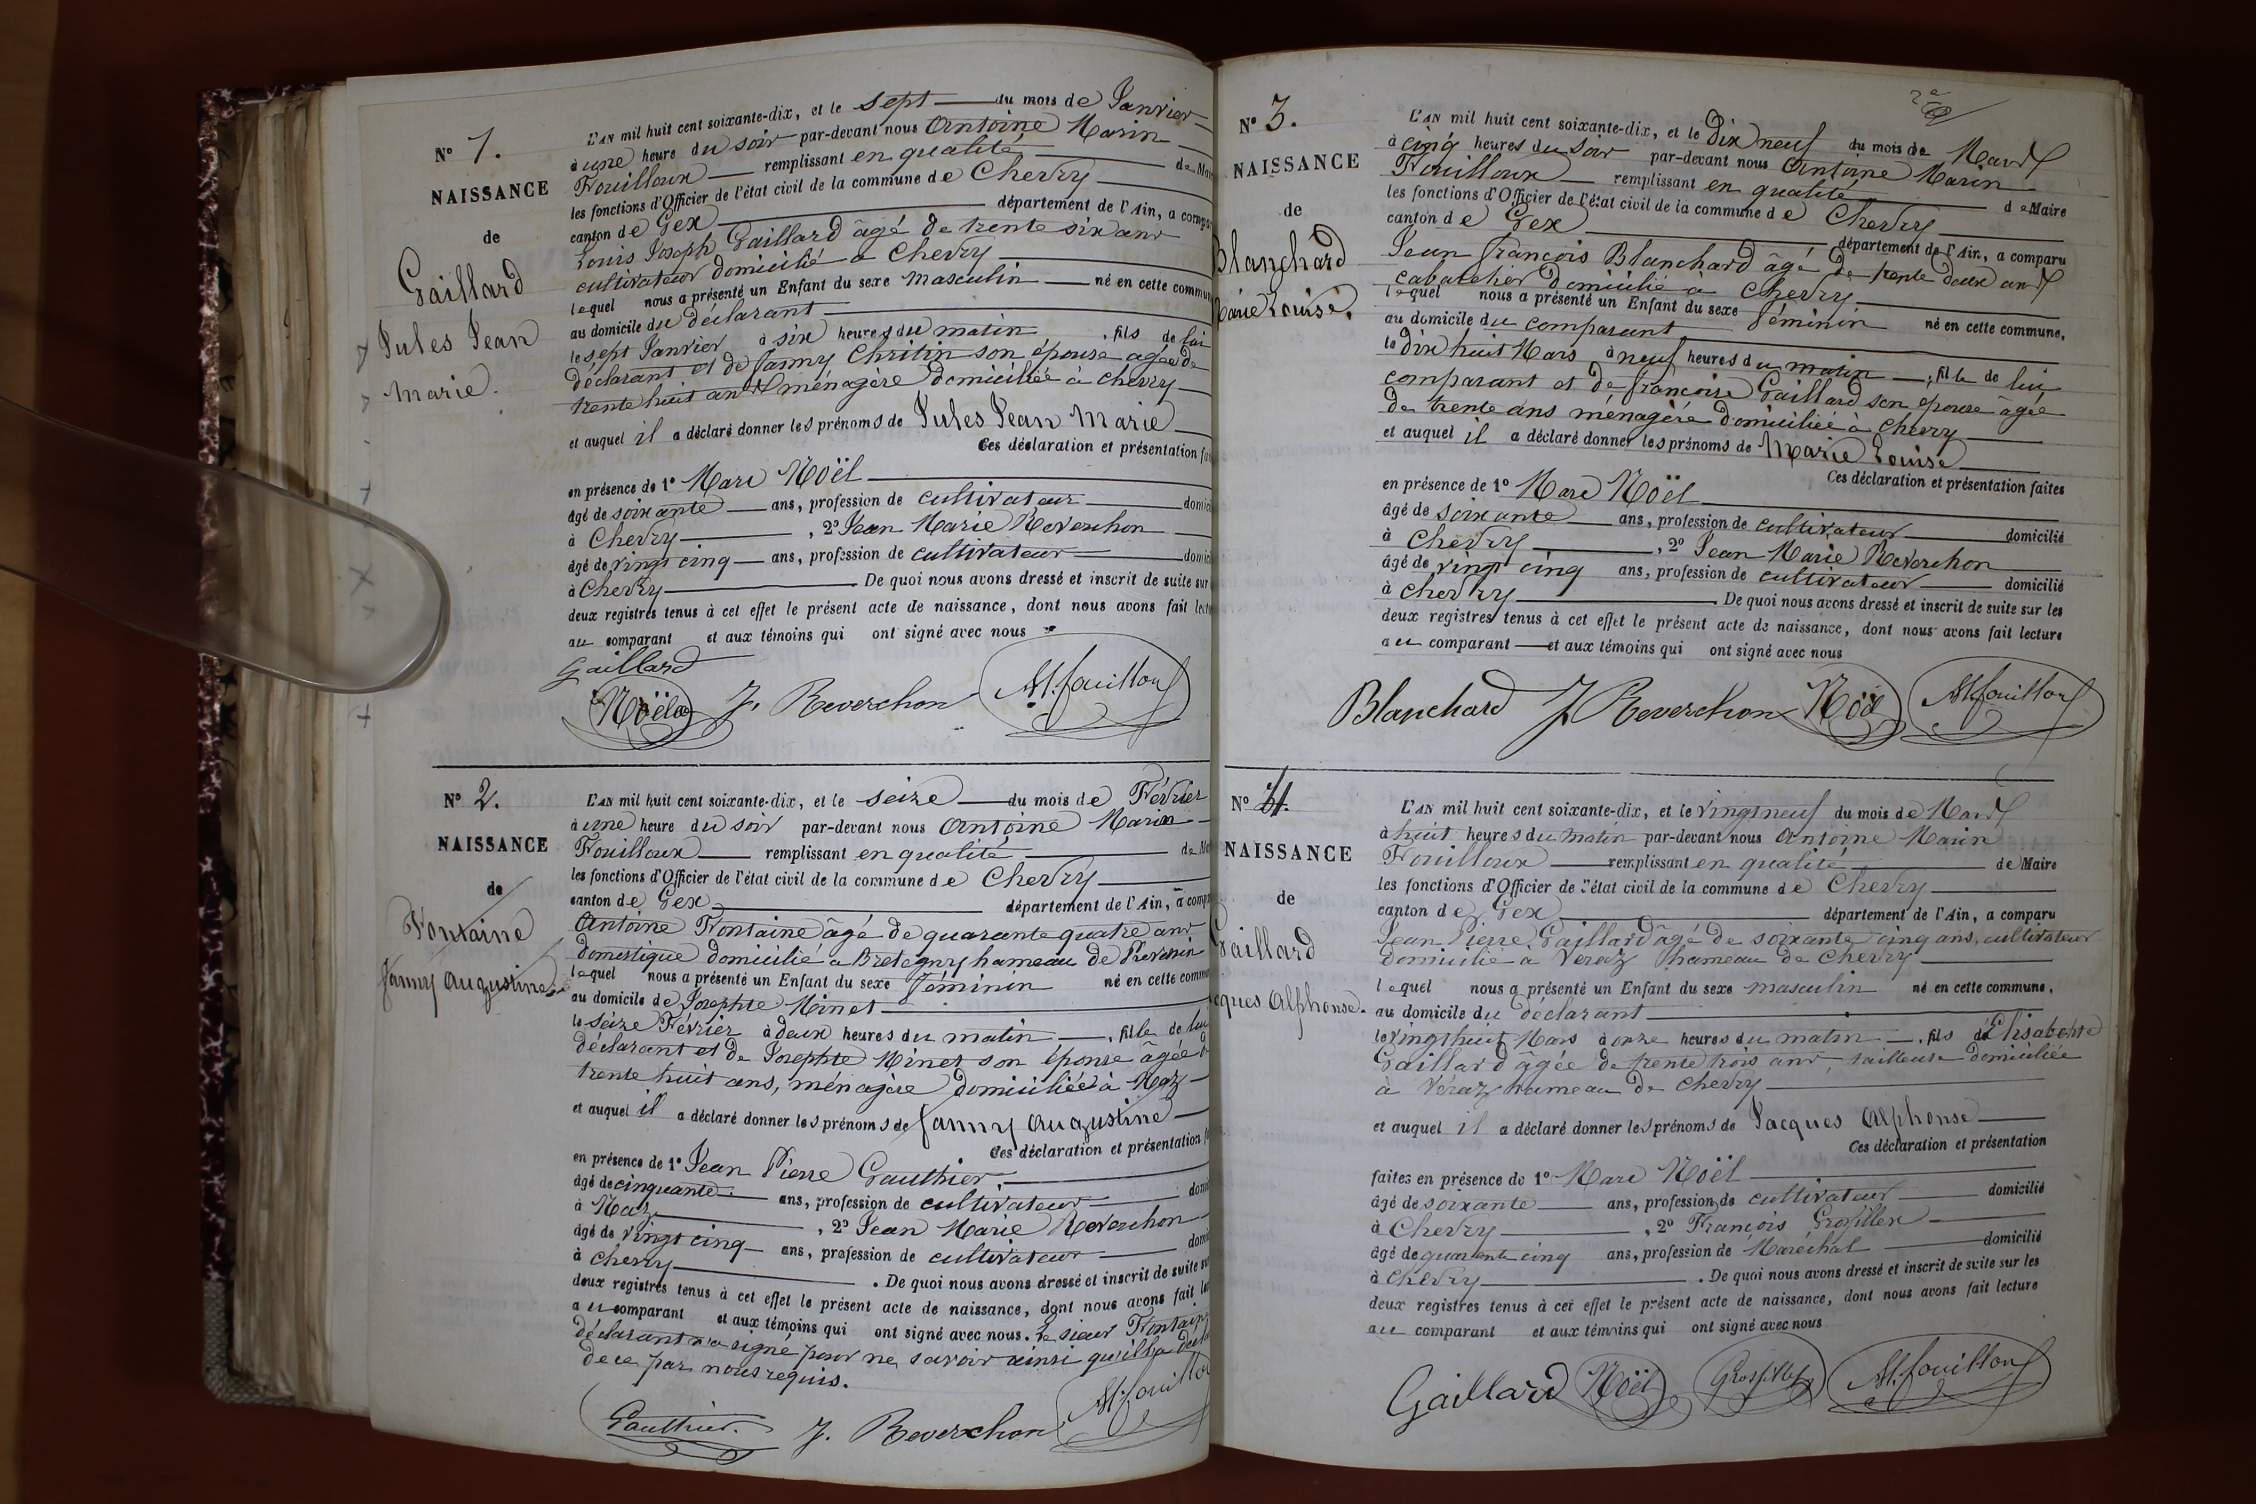 N° 1.
NAISSANCE
de
Gaillard
Jules Jean
Marie.
L'AN mil huit cent soixante-dix, et le sept du mois de Janvier
à une heure du soir par-devant nous Antoine Marin
Fouilloux remplissant en qualité de Mai
les fonctions d'Officier de l'état civil de la commune de Chevry
canton de Gex département de l'Ain, a compa
Louis Joseph Gaillard âgé de trente six ans
cultivateur domicilié à Chevry
lequel nous a présenté un Enfant du sexe masculin né en cette commun
au domicile du déclarant
le sept Janvier à six heures du matin, fils de lui
déclarant et de Fanny Chritin son épouse agée de
trente huit ans ménagère domiciliée à Chevry
et auquel il a déclaré donner les prénoms de Jules Jean Marie
Ces déclaration et présentation fai
en présence de 1° Marc Noël
âgé de soixante ans, profession de cultivateur domici
à Chevry, 2° Jean Marie Reverchon
âgé de vingt cinq ans, profession de cultivateur domici
à Chevry. De quoi nous avons dressé et inscrit de suite sur
deux registres tenus à cet effet le présent acte de naissance, dont nous avons fait lectu
au comparant et aux témoins qui ont signé avec nous.
Gaillard
Noël J. Reverchon AM. fouilloux
N° 2.
NAISSANCE
de
Fontaine
Fanny Augustine
L'AN mil huit cent soixante-dix, et le seize du mois de Février
à une heure du soir par-devant nous Antoine Marin
Fouilloux remplissant en qualité de Ma
les fonctions d'Officier de l'état civil de la commune de Chevry
canton de Gex département de l'Ain, a compa
Antoine Fontaine âgé de quarante quatre ans
domestique domicilié à Bretegny hameau de Prevessin
lequel nous a présenté un Enfant du sexe féminin né en cette commu
au domicile de Josephte Minet
le seize Février à deux heures du matin, fille de lui
déclarant et de Josephte Minet son épouse âgée de
trente huit ans, ménagère domiciliée à Naz
et auquel il a déclaré donner les prénoms de Fanny Augustine
Ces déclaration et présentation fa
en présence de 1° Jean Pierre Gauthier
âgé de cinquante ans, profession de cultivateur domi
à Naz, 2° Jean Marie Reverchon
âgé de vingt cinq ans, profession de cultivateur domi
à Chevry. De quoi nous avons dressé et inscrit de suite su
deux registres tenus à cet effet le présent acte de naissance, dont nous avons fait lec
au comparant et aux témoins qui ont signé avec nous. Le sieur Fontaine
déclarant n'a signé pour ne savoir ainsi qu'il l'a décla
de ce par nous requis.
Gauthier. J. Reverchon AM. fouilloux
N° 3.
NAISSANCE
de
Blanchard
Marie Louise.
L'AN mil huit cent soixante-dix, et le dix neuf du mois de Mars
à cinq heures du soir par-devant nous Antoine Marin
Fouilloux remplissant en qualité de Maire
les fonctions d'Officier de l'état civil de la commune de Chevry
canton de Gex département de l'Ain, a comparu
Jean François Blanchard âgé de trente deux ans
cabaretier domicilié à Chevry
lequel nous a présenté un Enfant du sexe féminin né en cette commune,
au domicile du comparant
le dix huit Mars à neuf heures du matin, fille de lui
comparant et de françoise Gaillard son épouse âgée
de trente ans ménagère domiciliée à Chevry
et auquel il a déclaré donner les prénoms de Marie Louise
Ces déclaration et présentation faites
en présence de 1° Marc Noël
âgé de soixante ans, profession de cultivateur domicilié
à Chevry, 2° Jean Marie Reverchon
âgé de vingt cinq ans, profession de cultivateur domicilié
à Chevry. De quoi nous avons dressé et inscrit de suite sur les
deux registres tenus à cet effet le présent acte de naissance, dont nous avons fait lecture
au comparant et aux témoins qui ont signé avec nous
Blanchard J Reverchon Noël AM. fouilloux
N° 4.
NAISSANCE
de
Gaillard
cques Alphonse.
L'AN mil huit cent soixante-dix, et le vingt neuf du mois de Mars
à huit heures du matin par-devant nous Antoine Marin
Fouilloux remplissant en qualité de Maire
les fonctions d'Officier de l'état civil de la commune de Chevry
canton de Gex département de l'Ain, a comparu
Jean Pierre Gaillard âgé de soixante cinq ans, cultivateur
domicilié à Veraz hameau de Chevry
lequel nous a présenté un Enfant du sexe masculin né en cette commune,
au domicile du déclarant
le vingt huit Mars à onze heures du matin, fils d'Elisabethte
Gaillard âgée de trente trois ans, tailleuse domiciliée
à Véraz hameau de Chevry
et auquel il a déclaré donner les prénoms de Jacques Alphonse
Ces déclaration et présentation
faites en présence de 1° Marc Noël
âgé de soixante ans, profession de cultivateur domicilié
à Chevry, 2° François Grosfillex
âgé de quarante cinq ans, profession de Maréchal domicilié
à Chevry. De quoi nous avons dressé et inscrit de suite sur les
deux registres tenus à cet effet le présent acte de naissance, dont nous avons fait lecture
au comparant et aux témoins qui ont signé avec nous
Gaillard Noël Grosfillex AM. fouilloux